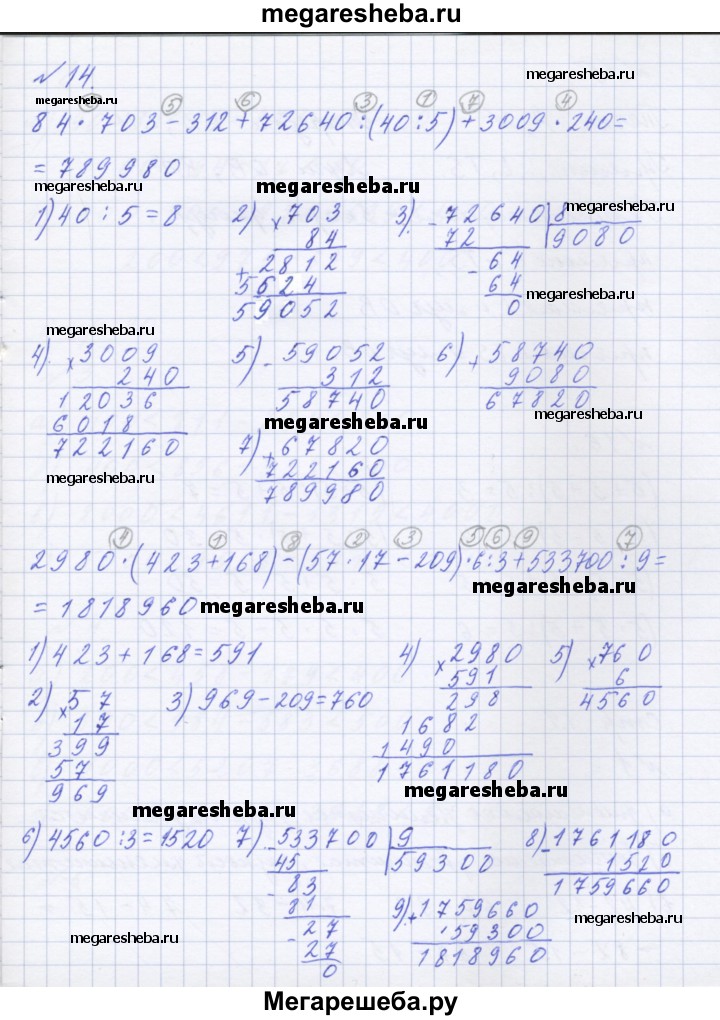 megaresheba.ru
№ 14.
megaresheba.ru
megaresheba.ru
② ⑤ ⑥ ③ ① ⑦ ④
84 · 703 - 312 + 72640 : (40 : 5) + 3009 · 240 =
= 789980
megaresheba.ru
megaresheba.ru
1) 40 : 5 = 8
2) × 703
84
+ 2812
5624
59052
3). - 72640 | 8
72 | 9080
- 64
64
0
megaresheba.ru
megaresheba.ru
megaresheba.ru
4). × 3009
240
12036
6018
722160
5) - 59052
312
58740
6) + 58740
9080
67820
megaresheba.ru
megaresheba.ru
megaresheba.ru
7) + 67820
722160
789980
④ ① ⑧ ② ③ ⑤ ⑥ ⑨ ⑦
2980 · (423 + 168) - (57 · 17 - 209) · 6 : 3 + 533700 : 9 =
= 1818960
megaresheba.ru
megaresheba.ru
1) 423 + 168 = 591
2) × 57
17
399
57
969
3) 969 - 209 = 760
4) × 2980
591
298
1682
1490
1761180
5) × 760
6
4560
megaresheba.ru
megaresheba.ru
6) 4560 : 3 = 1520
7) - 533700 | 9
45 | 59300
- 83
81
- 27
27
0
8) - 1761180
1520
1759660
9) + 1759660
59300
1818960
megaresheba.ru
megaresheba.ru
Мегарешеба.ру